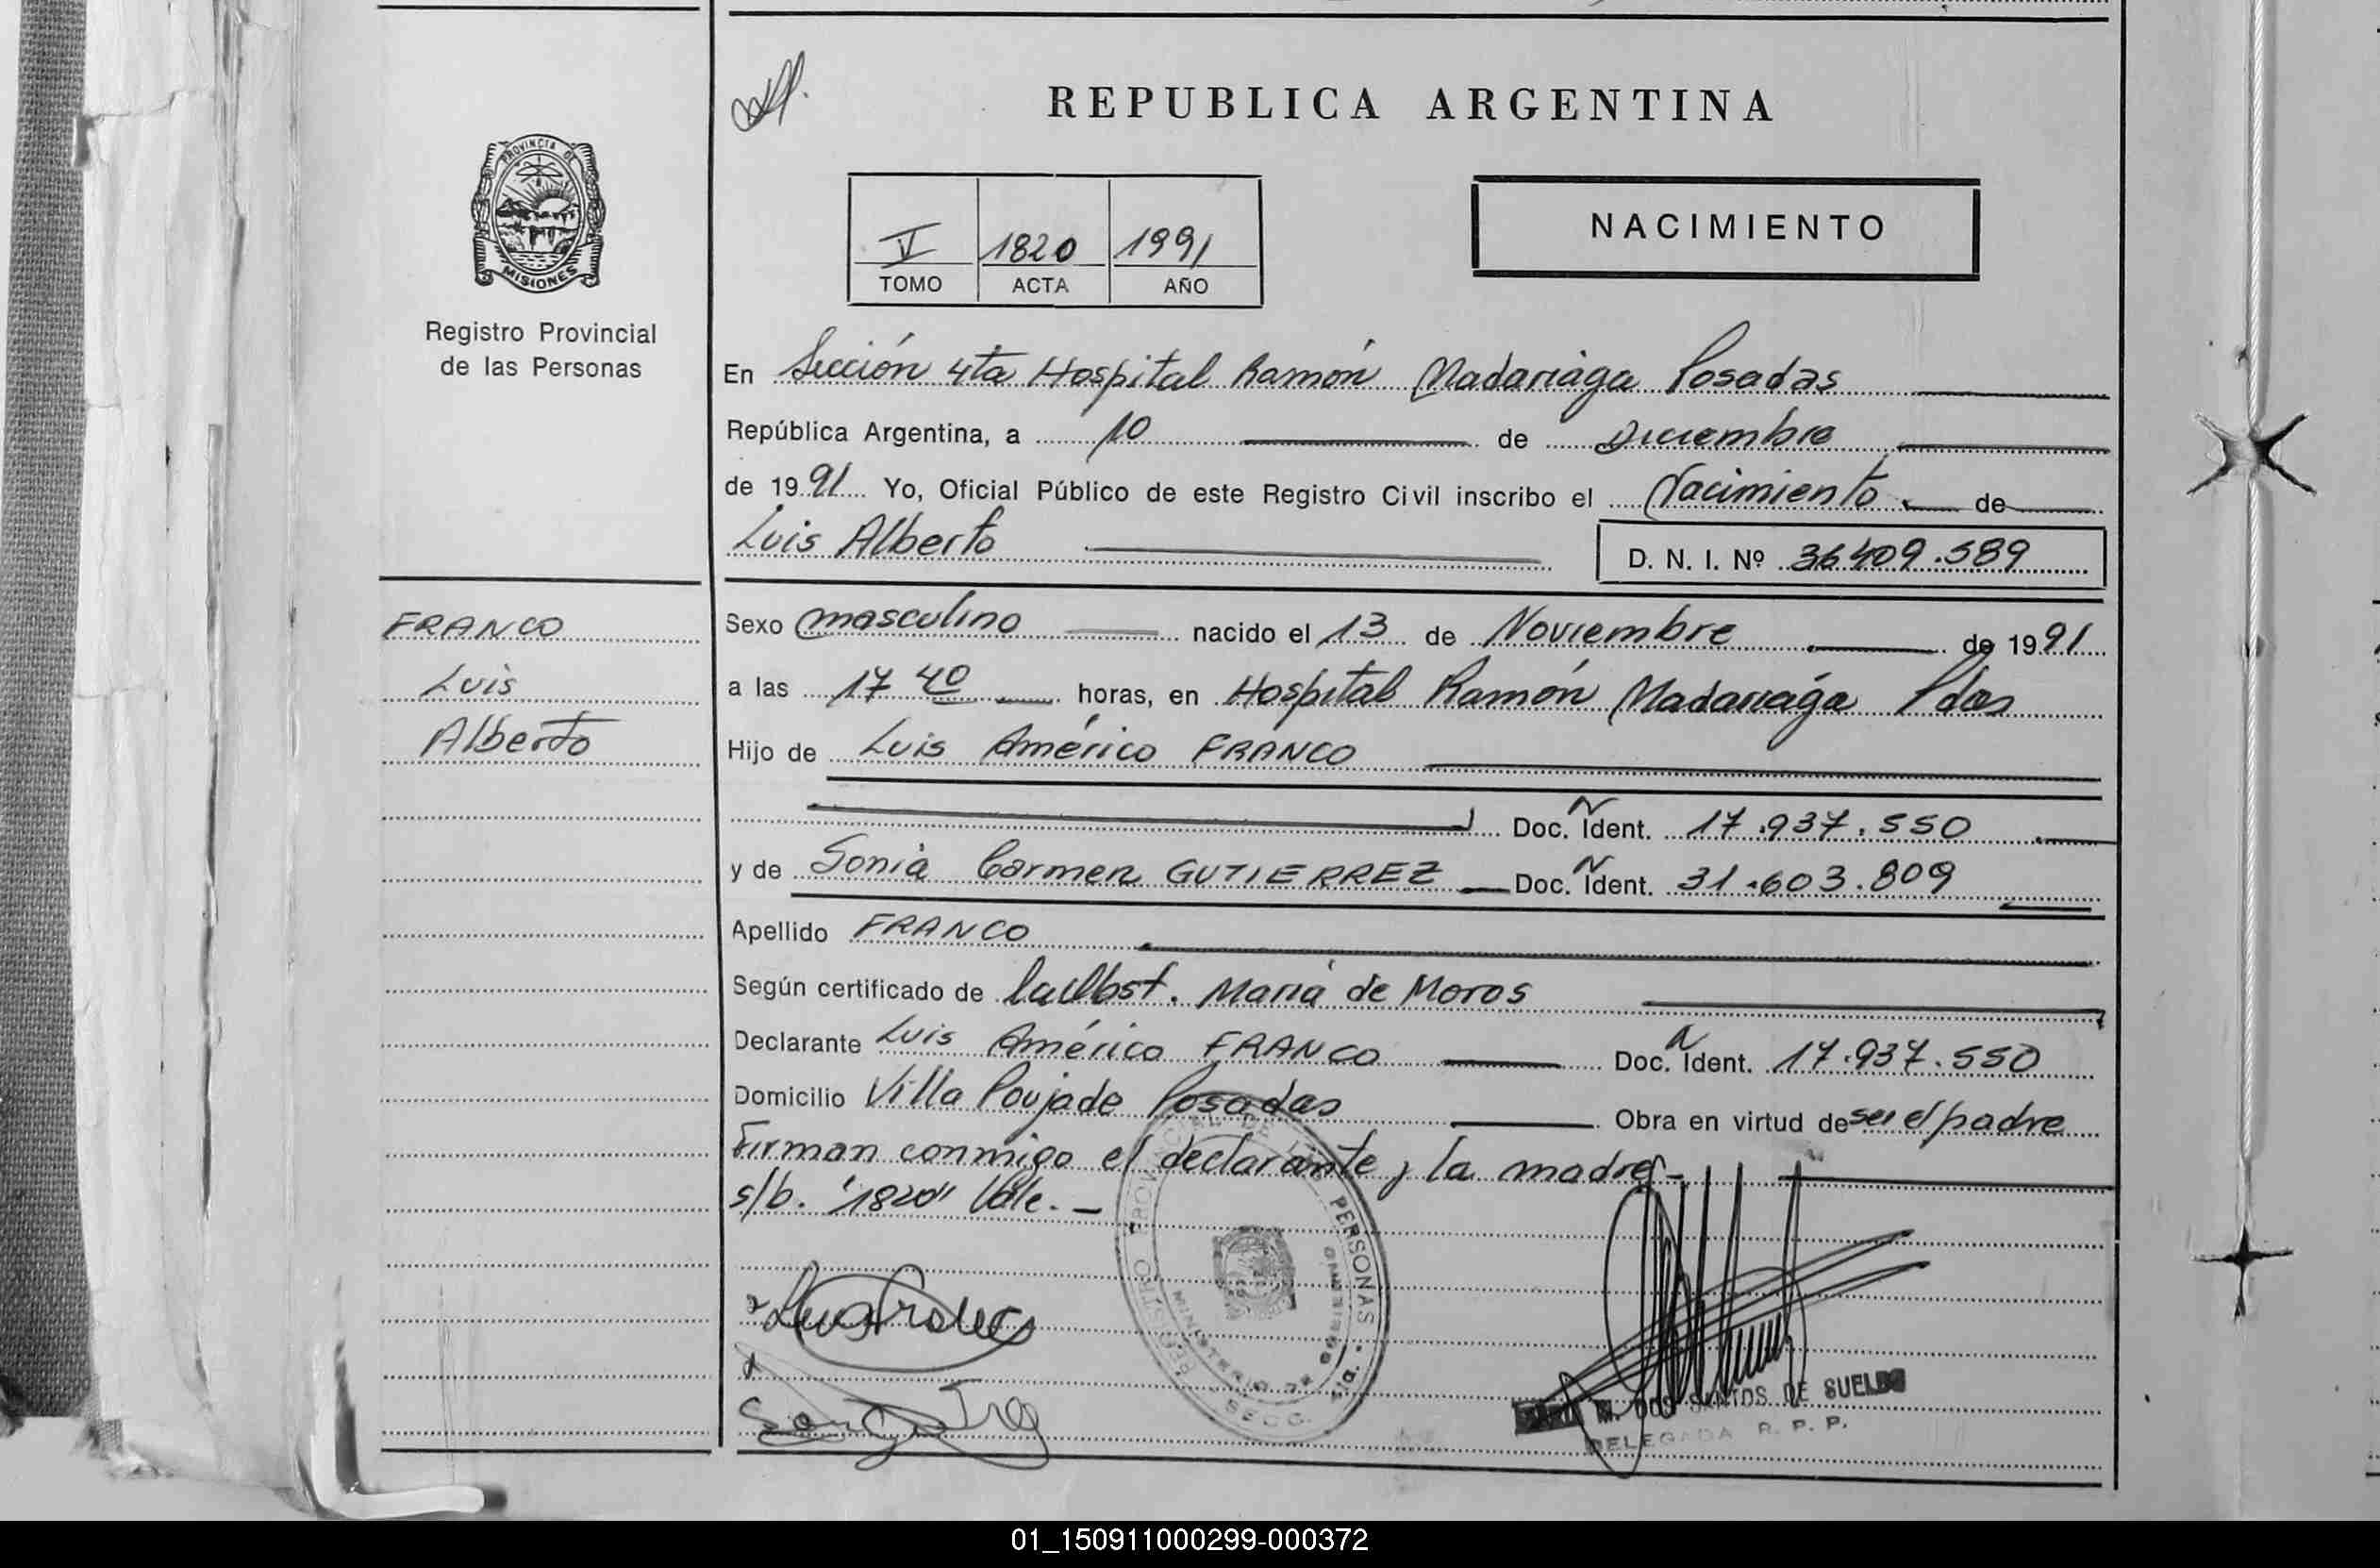 REPUBLICA ARGENTINA
PROVINCIA DE
MISIONES
Registro Provincial
de las Personas
V 1820 1991
TOMO ACTA AÑO
NACIMIENTO
En Sección 4ta Hospital Ramón Madariaga Posadas
República Argentina, a 10 de Diciembre
de 1991 Yo, Oficial Público de este Registro Civil inscribo el Nacimiento de
Luis Alberto D. N. I. Nº 36409.589
FRANCO
Luis
Alberto
Sexo masculino nacido el 13 de Noviembre de 1991
a las 17 40 horas, en Hospital Ramón Madariaga Pdas
Hijo de Luis Américo FRANCO
Doc. Ident. 17.937.550
y de Sonia Carmen GUTIERREZ Doc. Ident. 31.603.809
Apellido FRANCO
Según certificado de la Obst. María de Moros
Declarante Luis Américo FRANCO Doc. Ident. 17.937.550
Domicilio Villa Poujade Posadas Obra en virtud de ser el padre
Firman conmigo el declarante y la madre.-
s/b. "1820" Vale.-
REGISTRO PROVINCIAL DE LAS PERSONAS
MINISTERIO DE GOBIERNO
SECC. 4ta.
M. DOS SANTOS DE SUELDO
DELEGADA R. P. P.
01_150911000299-000372